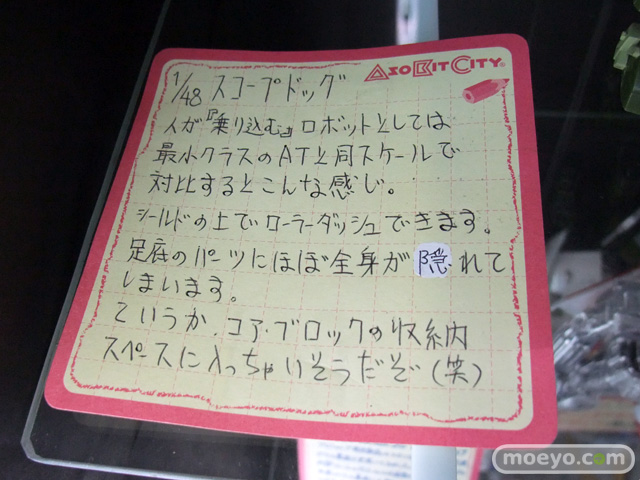 ASOBIT CITY
1/48 スコープドッグ
人が『乗り込む』ロボットとしては
最小クラスのATと同スケールで
対比するとこんな感じ。
シールドの上でローラーダッシュできます。
足底のパーツにほぼ全身が隠れて
しまいます。
ていうか、コア・ブロックの収納
スペースに入っちゃいそうだぞ(笑)
moeyo.com